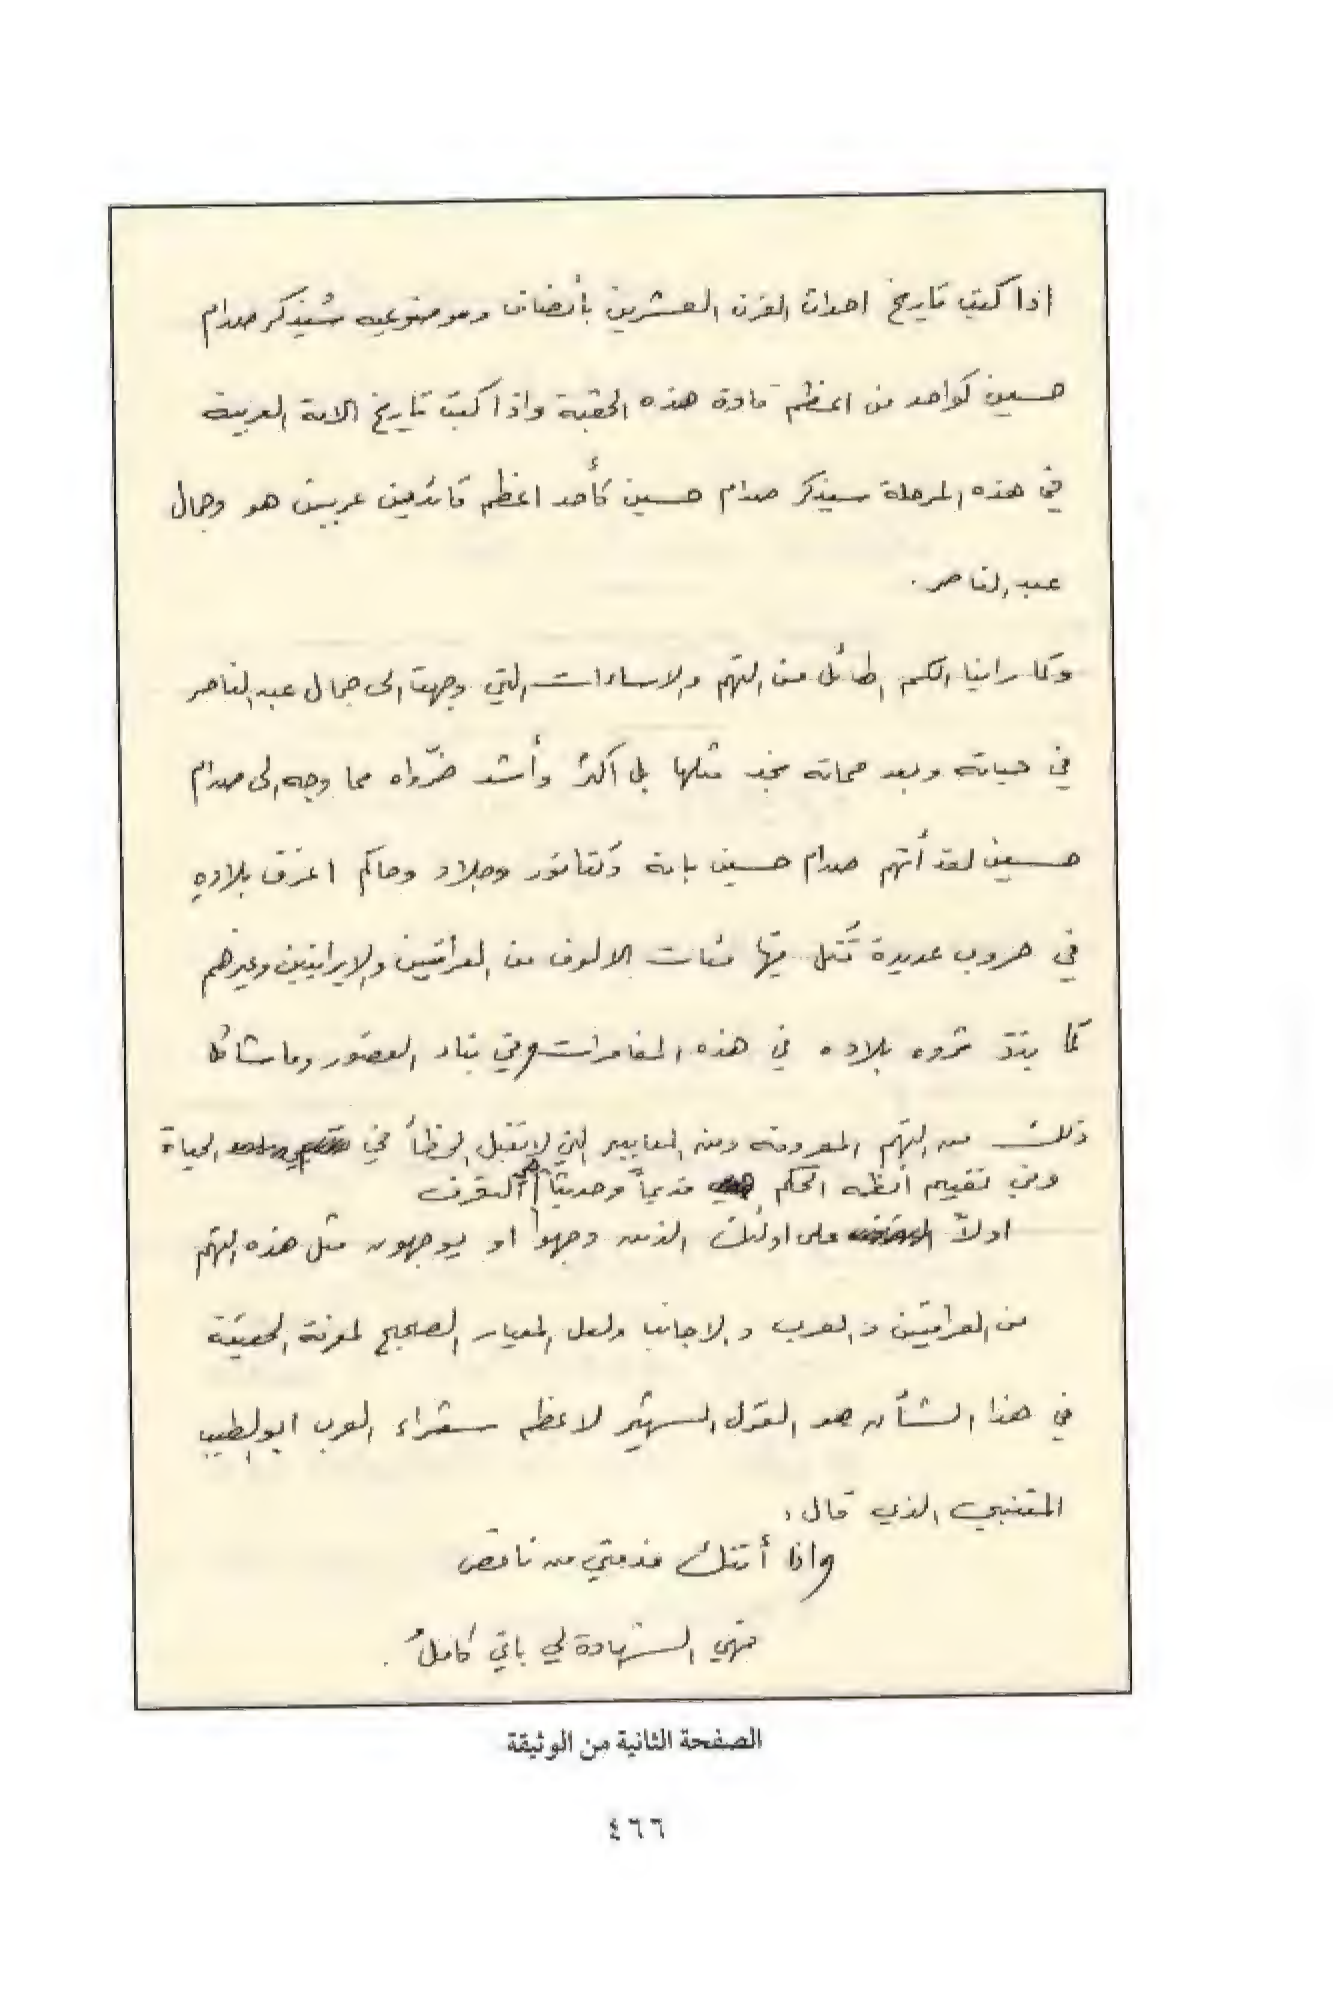 اذا كتب تاريخ احداث القرن العشرين بأنصاف وموضوعيه سُيذكر صدام
حسين كواحد من اعظم قادة هذه الحقبة واذا كتب تاريخ الامة العربية
في هذه المرحلة سيذكر صدام حسين كأحد اعظم قائدين عربيين هو وجمال
عبد الناصر .
وكما راينا الكم الهائل من التهم والاساءات التي وجهت الى جمال عبد الناصر
في حياته وبعد مماته نجد مثلها بل اكثر وأشد ضرّواه مما وجه الى صدام
حسين لقد أتهم صدام حسين بانه دكتاتور وجلاد وحاكم اغرق بلاده
في حروب عديدة قُتل فيها مئات الالوف من العراقيين والايرانيين وغيرهم
كما بدّد ثروه بلاده في هذه المغامرات وفي بناء القصور وما شاكل
ذلك من التهم المعروفه ومن المعايير التي لا تقبل الخطأ في الحياة
وفي تقييم أنظمه الحكم قديماً وحديثاً هي التعرف
اولاً على اولئك الذين وجهوا او يوجهون مثل هذه التهم
من العراقيين والعرب والاجانب ولعل المعيار الصحيح لمعرفة الحقيقة
في هذا الشأن هو القول الشهير لاعظم شعراء العرب ابو الطيب
المتنبي الذي قال :
واذا أتتك مذمتي من ناقص
فهي الشهادة لي باني كاملُ .
الصفحة الثانية من الوثيقة
٤٦٦